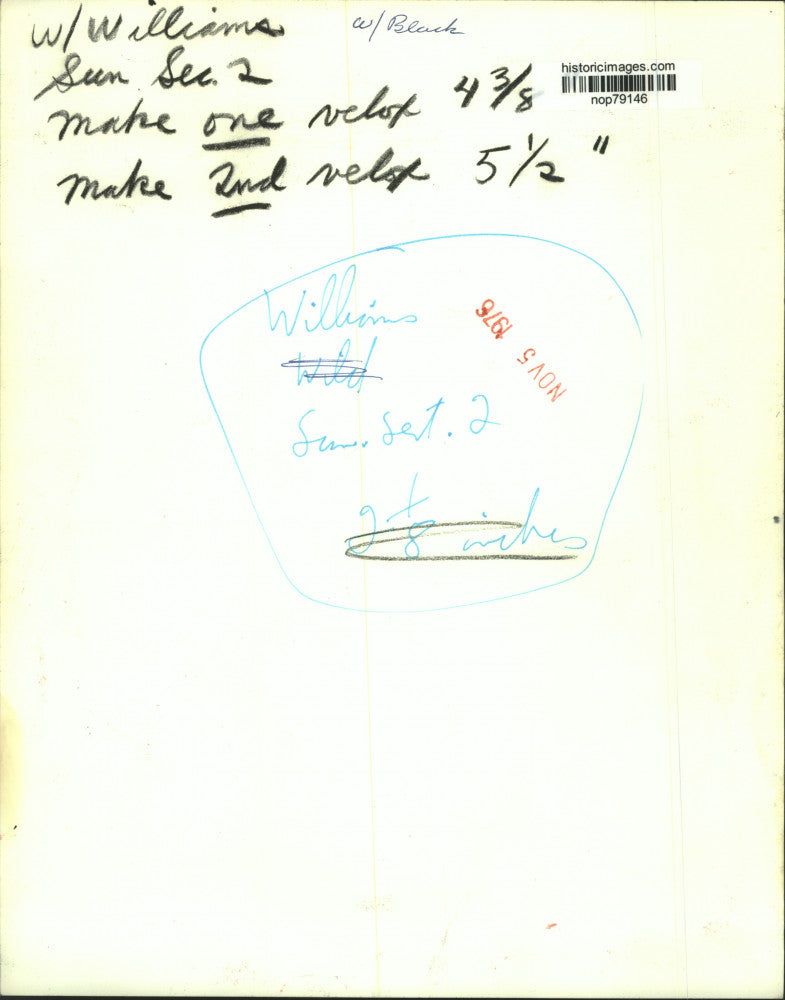 w/Williams
w/ Black
Sun Sec. 2
make one velox 4 3/8
make 2nd velox 5 1/2 "
historicimages.com
nop79146
Williams
Wild
Sun. Sect. 2
2 1/8 inches
NOV 5 1976